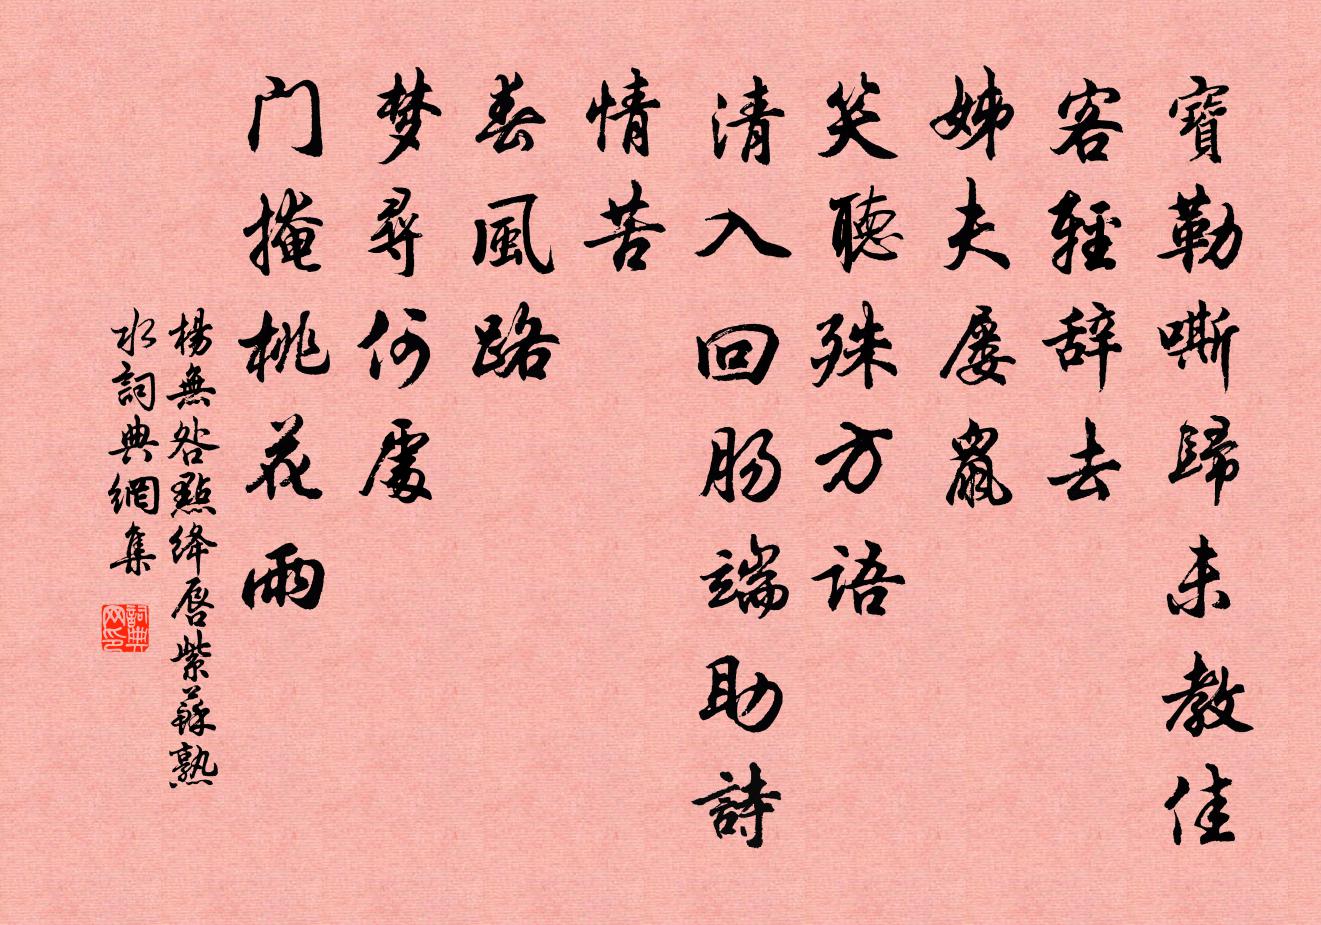 寶勒嘶歸未教佳
客輕辞去
姊夫屡鼠
笑聽殊方语
清入回肠端助詩
情苦
春風路
梦尋何處
门掩桃花雨
楊無咎點绛唇紫蘇熟
水詞典網集
詞典
网印